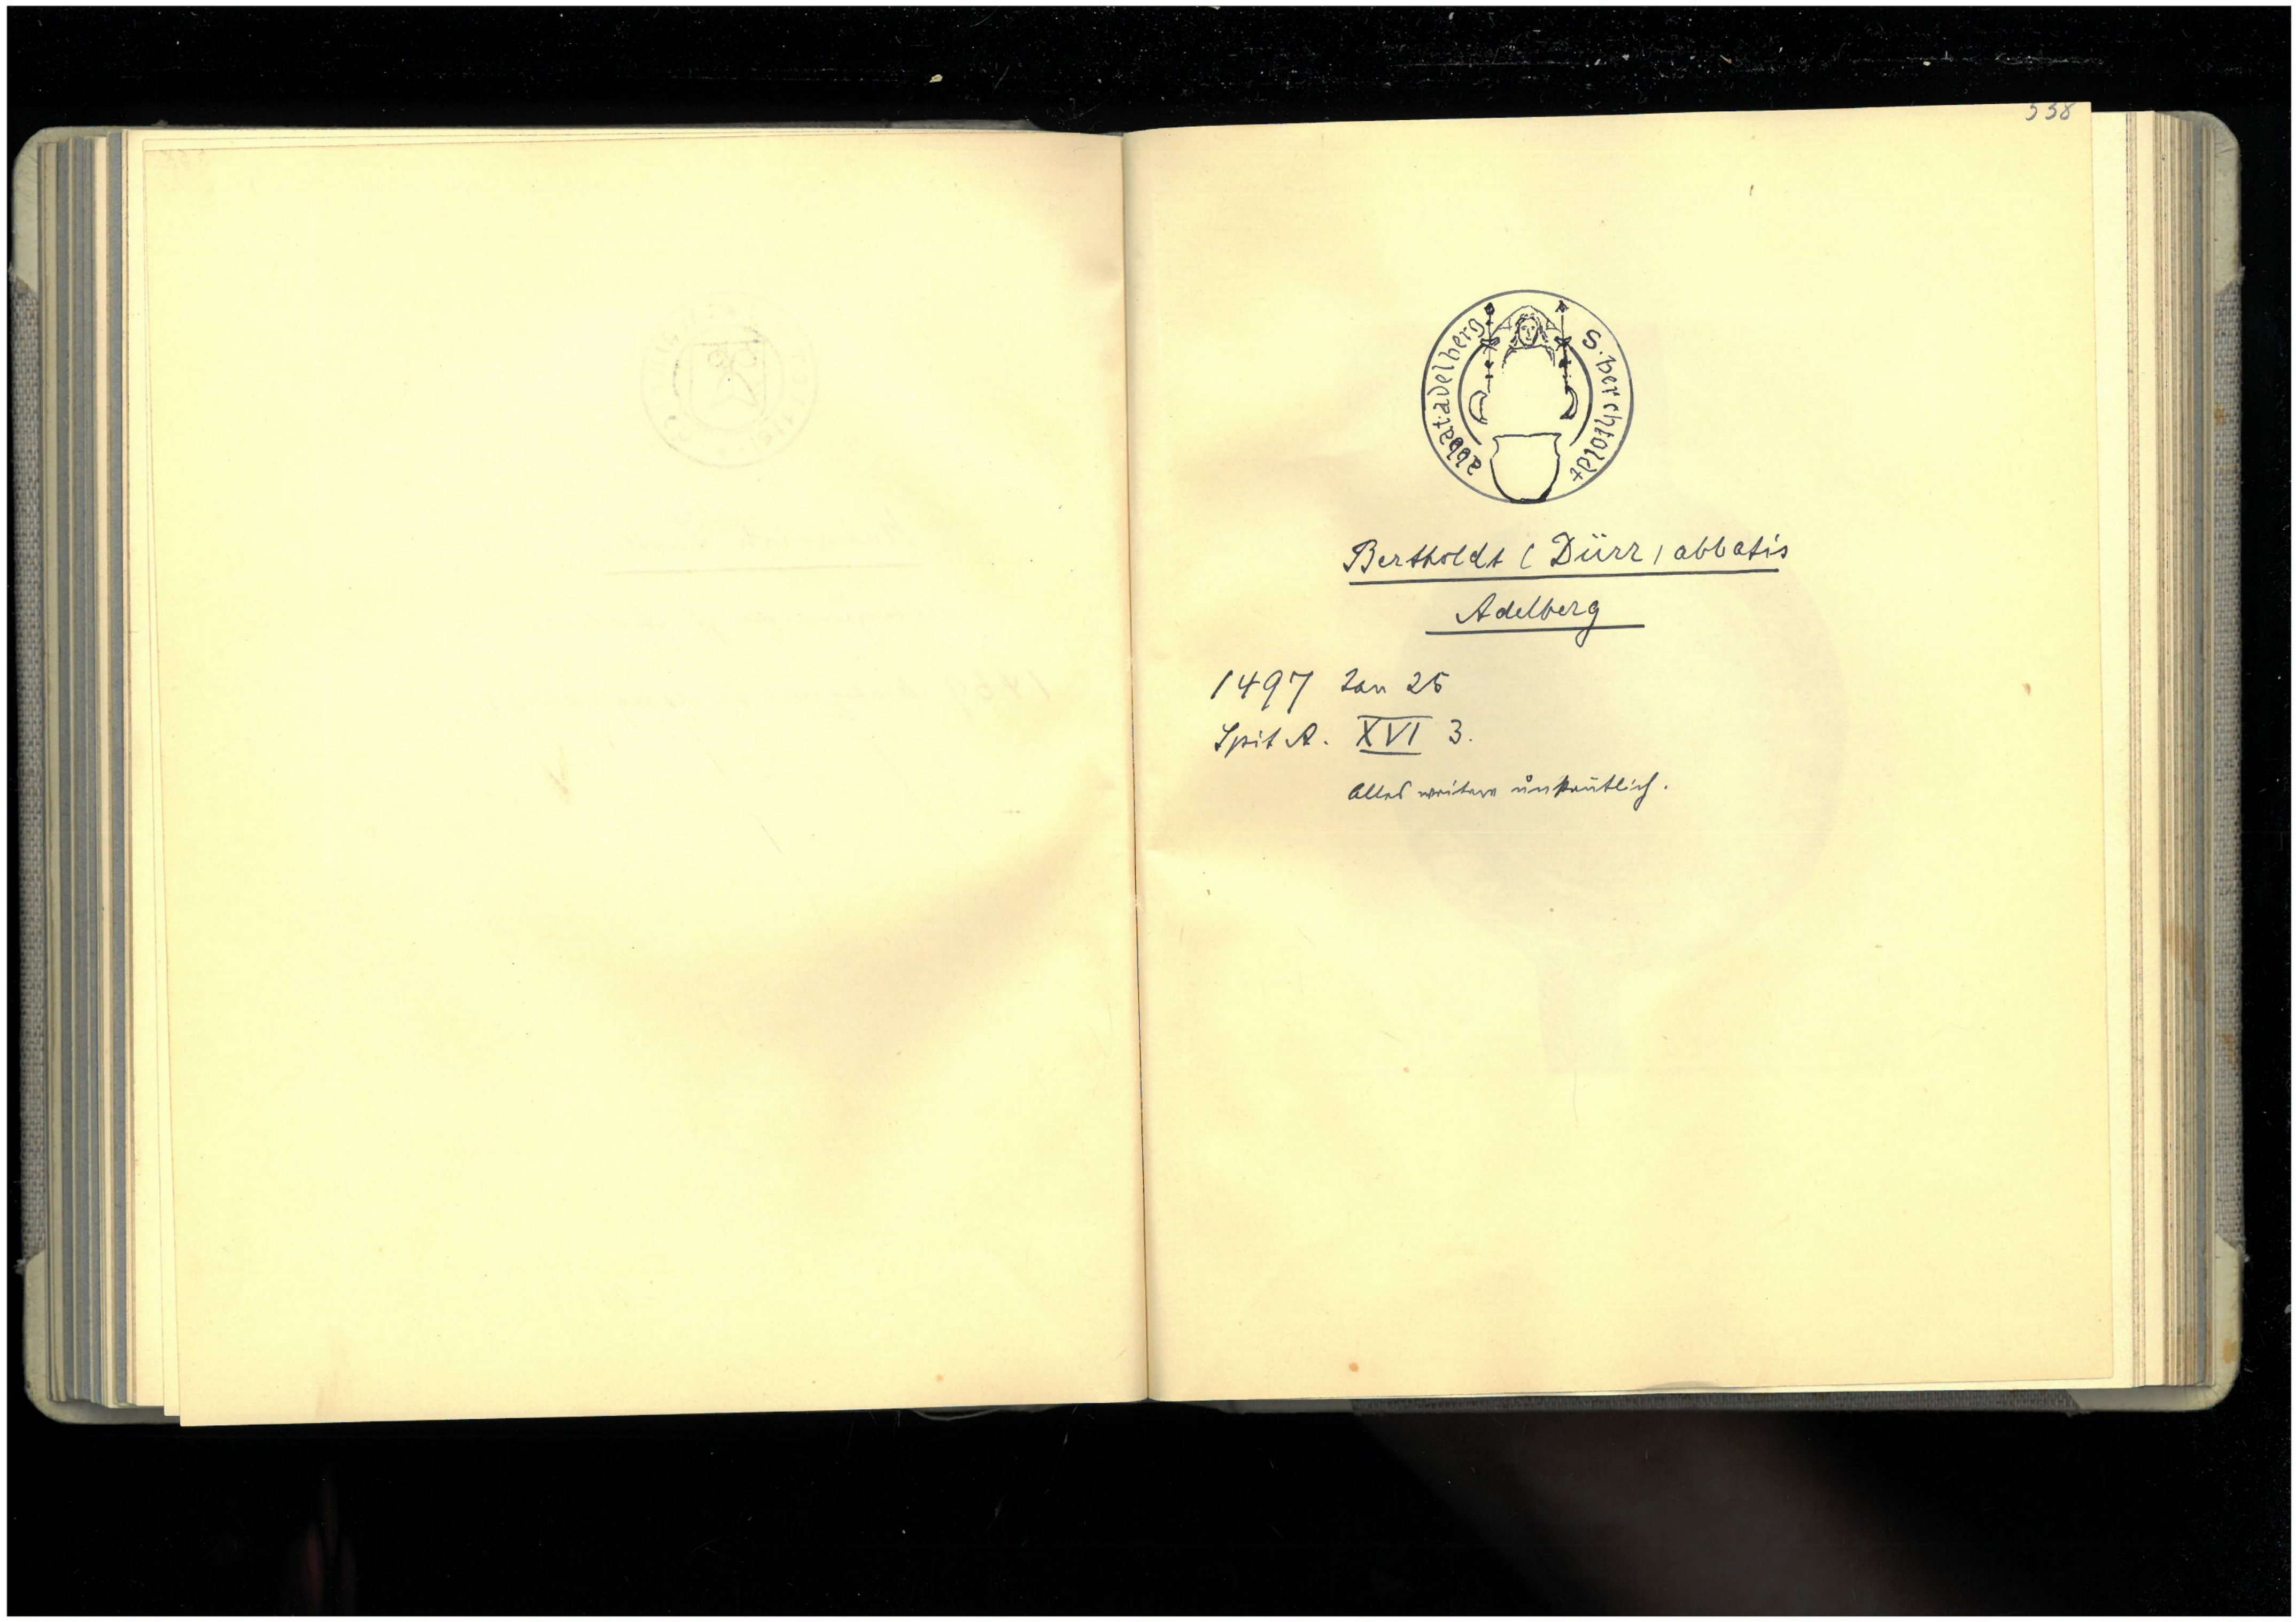 338
S. berchtoldt
abbat. adelberg
Bertholdt (Dürr) abbatis
Adelberg
1497 Jan 25
Spit A. XVI 3.
Alles weitere unkentlich.